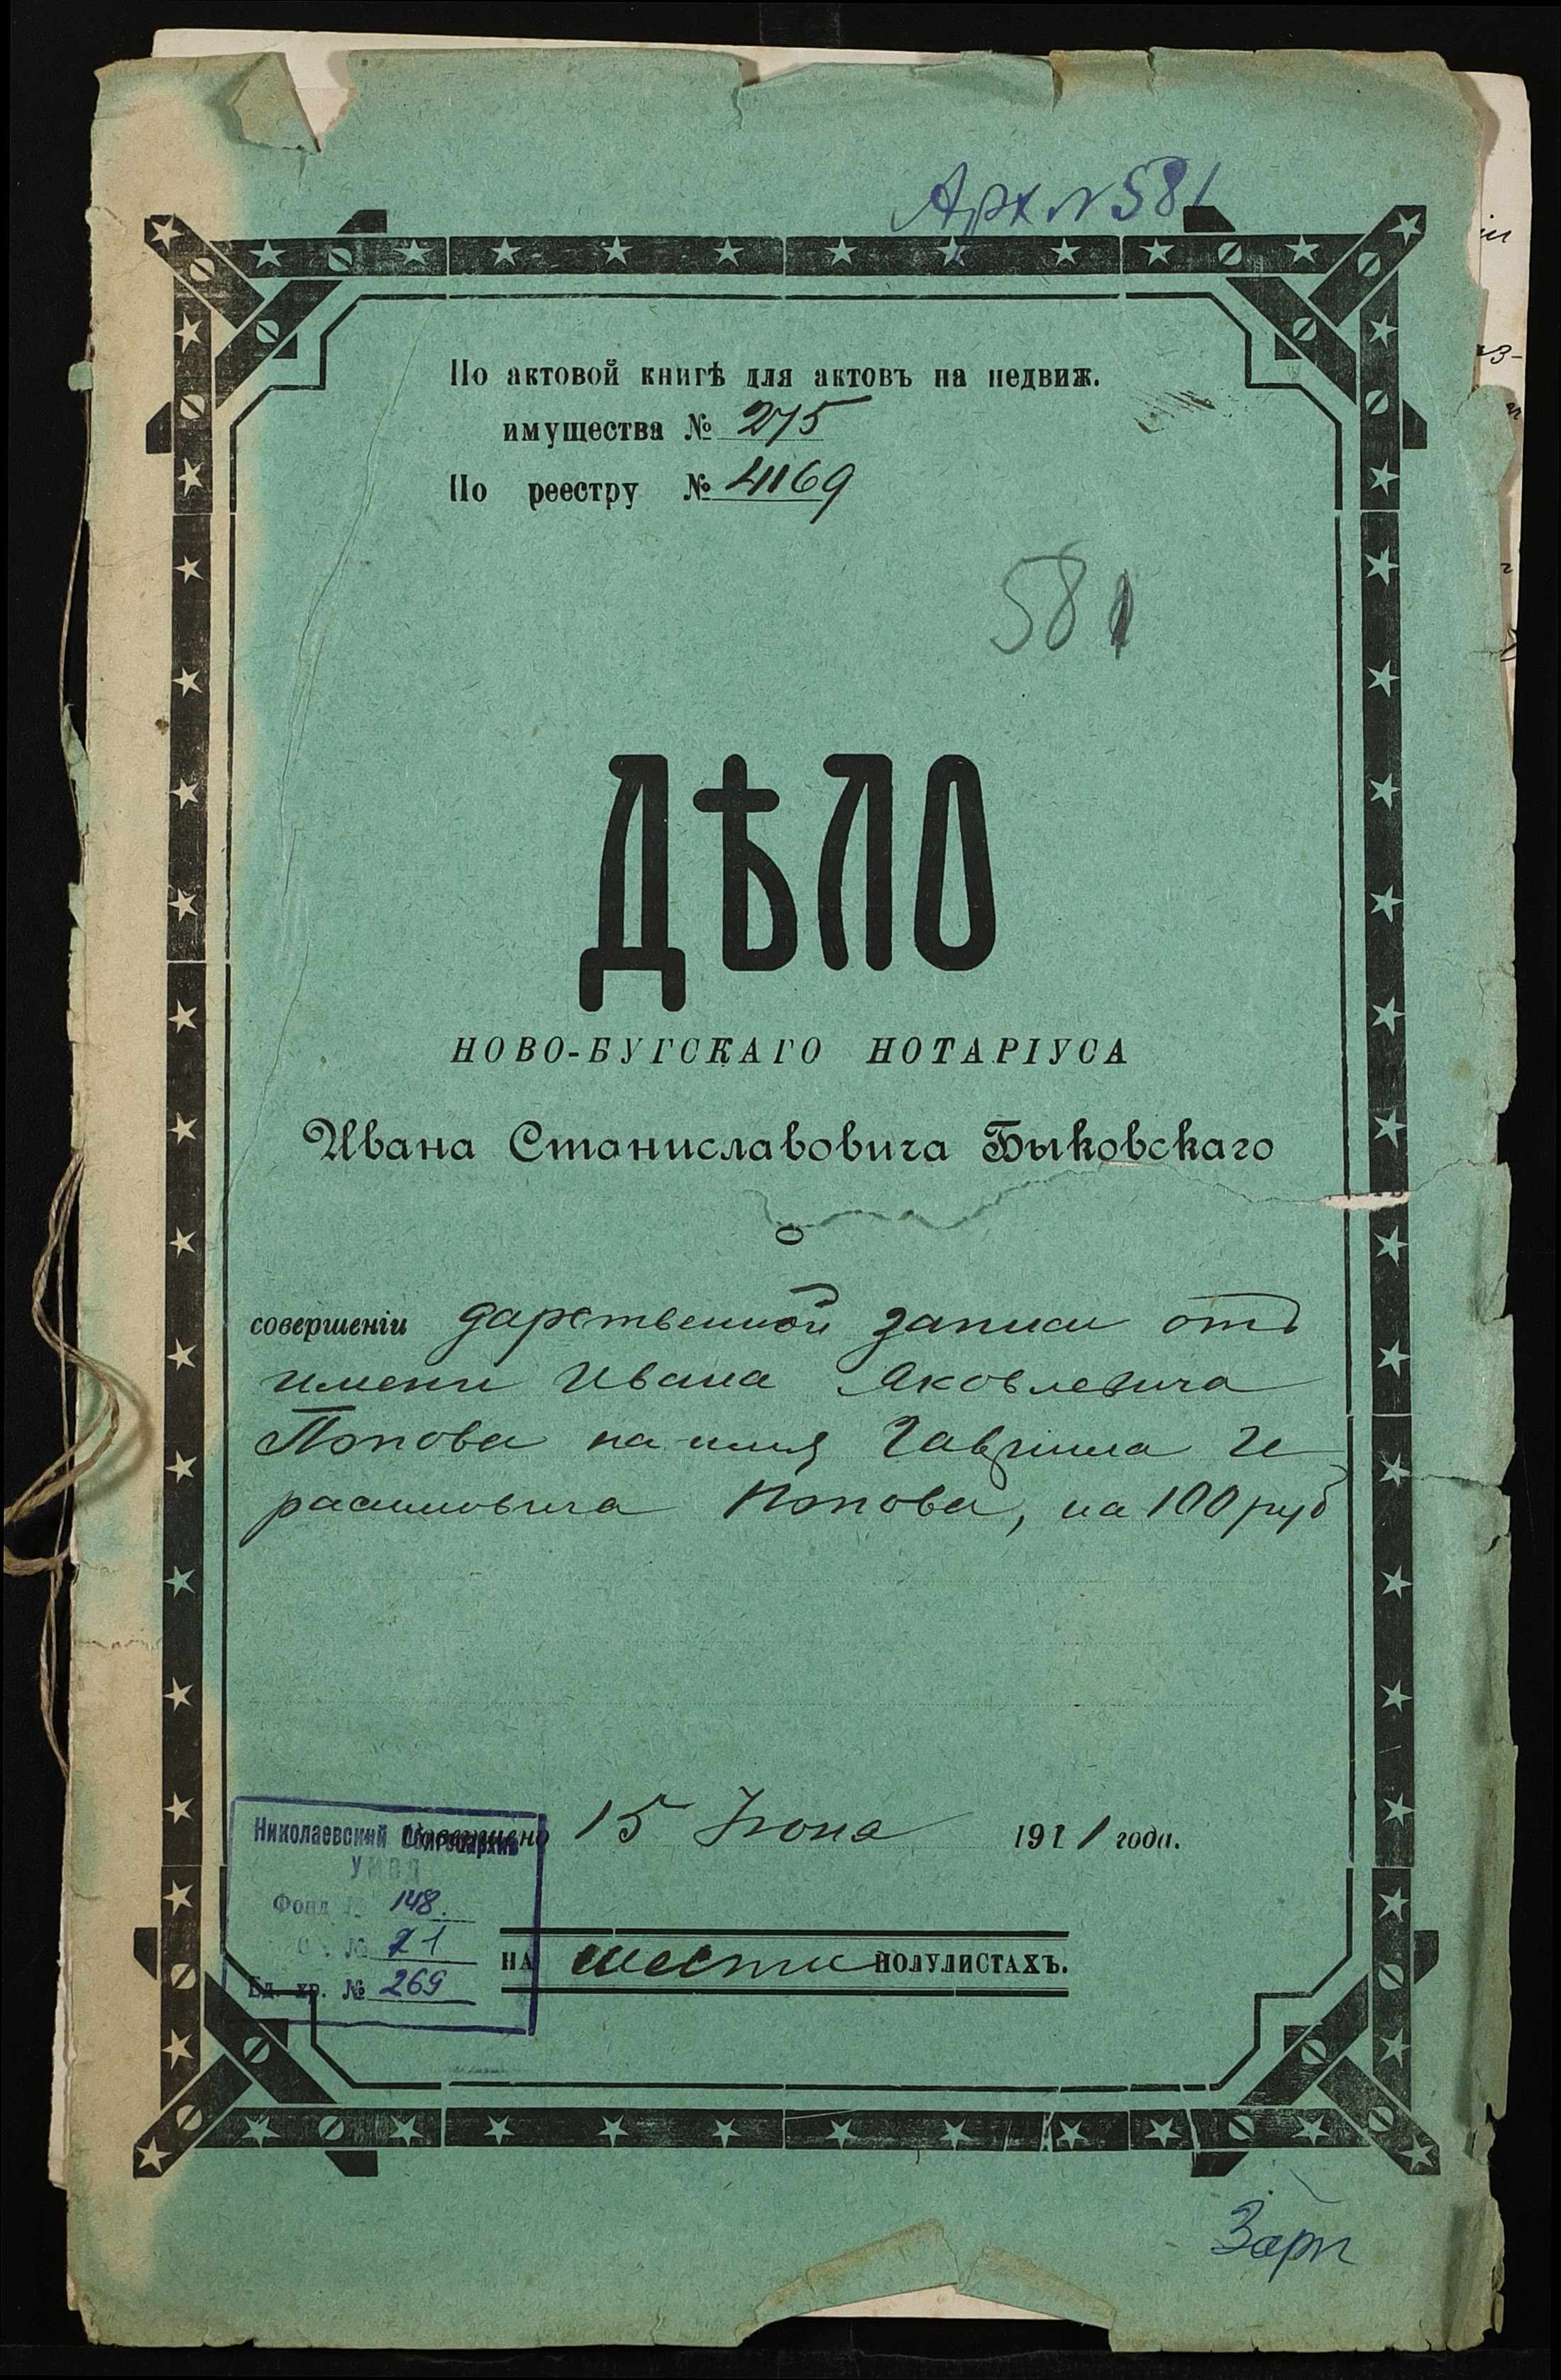 Арх N 581
По актовой книгѣ для актовъ на недвиж.
имущества № 275
По реестру № 4169
581
ДѢЛО
НОВО-БУГСКАГО НОТАРІУСА
Ивана Станиславовича Быковскаго
О
совершеніи дарственной записи отъ
имени Ивана Яковлевича
Попова на имя Гавріила Ге
расимовича Попова, на 100 руб
Совершено 15 Іюня 1911 года.
НА шести ПОЛУЛИСТАХЪ.
Николаевский Облгосархив
УМВД
Фонд № 148.
Оп. № 21
Ед. хр. № 269